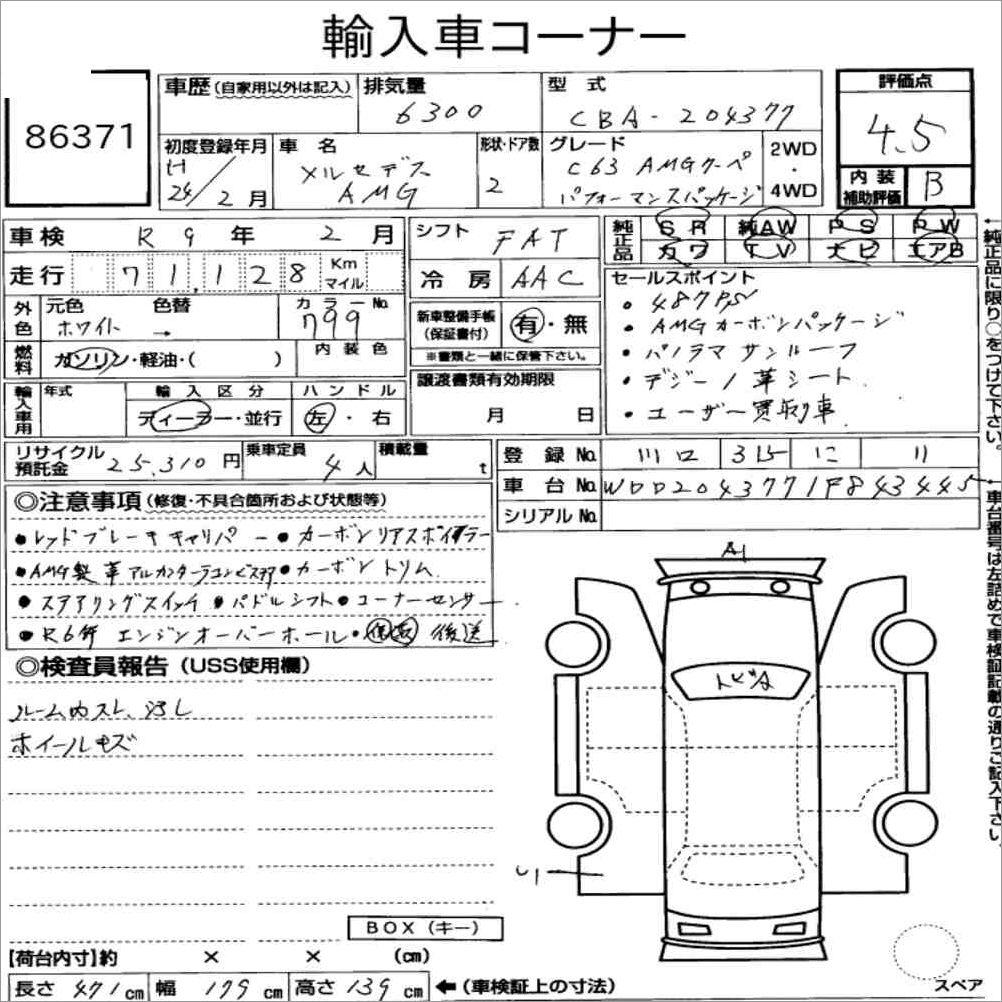 輸入車コーナー
86371
車歴(自家用以外は記入) 排気量 6300 型式 CBA-204377
評価点 4.5
初度登録年月 H24/2月 車名 メルセデス AMG 形状・ドア数 2 グレード C63 AMGクーペ パフォーマンスパッケージ 2WD・4WD
内装補助評価 B
車検 R9年 2月 シフト FAT 純正品 SR 純AW PS PW
カワ TV ナビ エアB
走行 71,128 Km マイル 冷房 AAC
外色 元色 ホワイト 色替 → カラーNo. 799
新車整備手帳(保証書付) 有・無
※書類と一緒に保管下さい。
燃料 ガソリン・軽油・( ) 内装色
輸入車用 年式 輸入区分 ディーラー・並行 ハンドル 左・右
譲渡書類有効期限 月 日
セールスポイント
• 487PS
• AMGカーボンパッケージ
• パノラマサンルーフ
• デジーノ革シート
• ユーザー買取車
リサイクル預託金 25,310円 乗車定員 4人 積載量 t
登録No. 川口 315 に 11
車台No. WDD2043771F843445
シリアルNo.
◎注意事項(修復・不具合箇所および状態等)
•レッドブレーキキャリパー •カーボンリアスポイラー
•AMG製革アルカンターラコンビステア •カーボントリム
•ステアリングスイッチ •パドルシフト •コーナーセンサー
•R6年 エンジンオーバーホール • 後送
◎検査員報告(USS使用欄)
ルーム内スレ、汚レ
ホイールキズ
A1
トビA
BOX(キー)
【荷台内寸】約 × × (cm)
長さ 471cm 幅 179cm 高さ 139cm ←(車検証上の寸法)
スペア
←純正品に限り○をつけて下さい。
←車台番号は左詰めで車検証記載の通りご記入下さい。